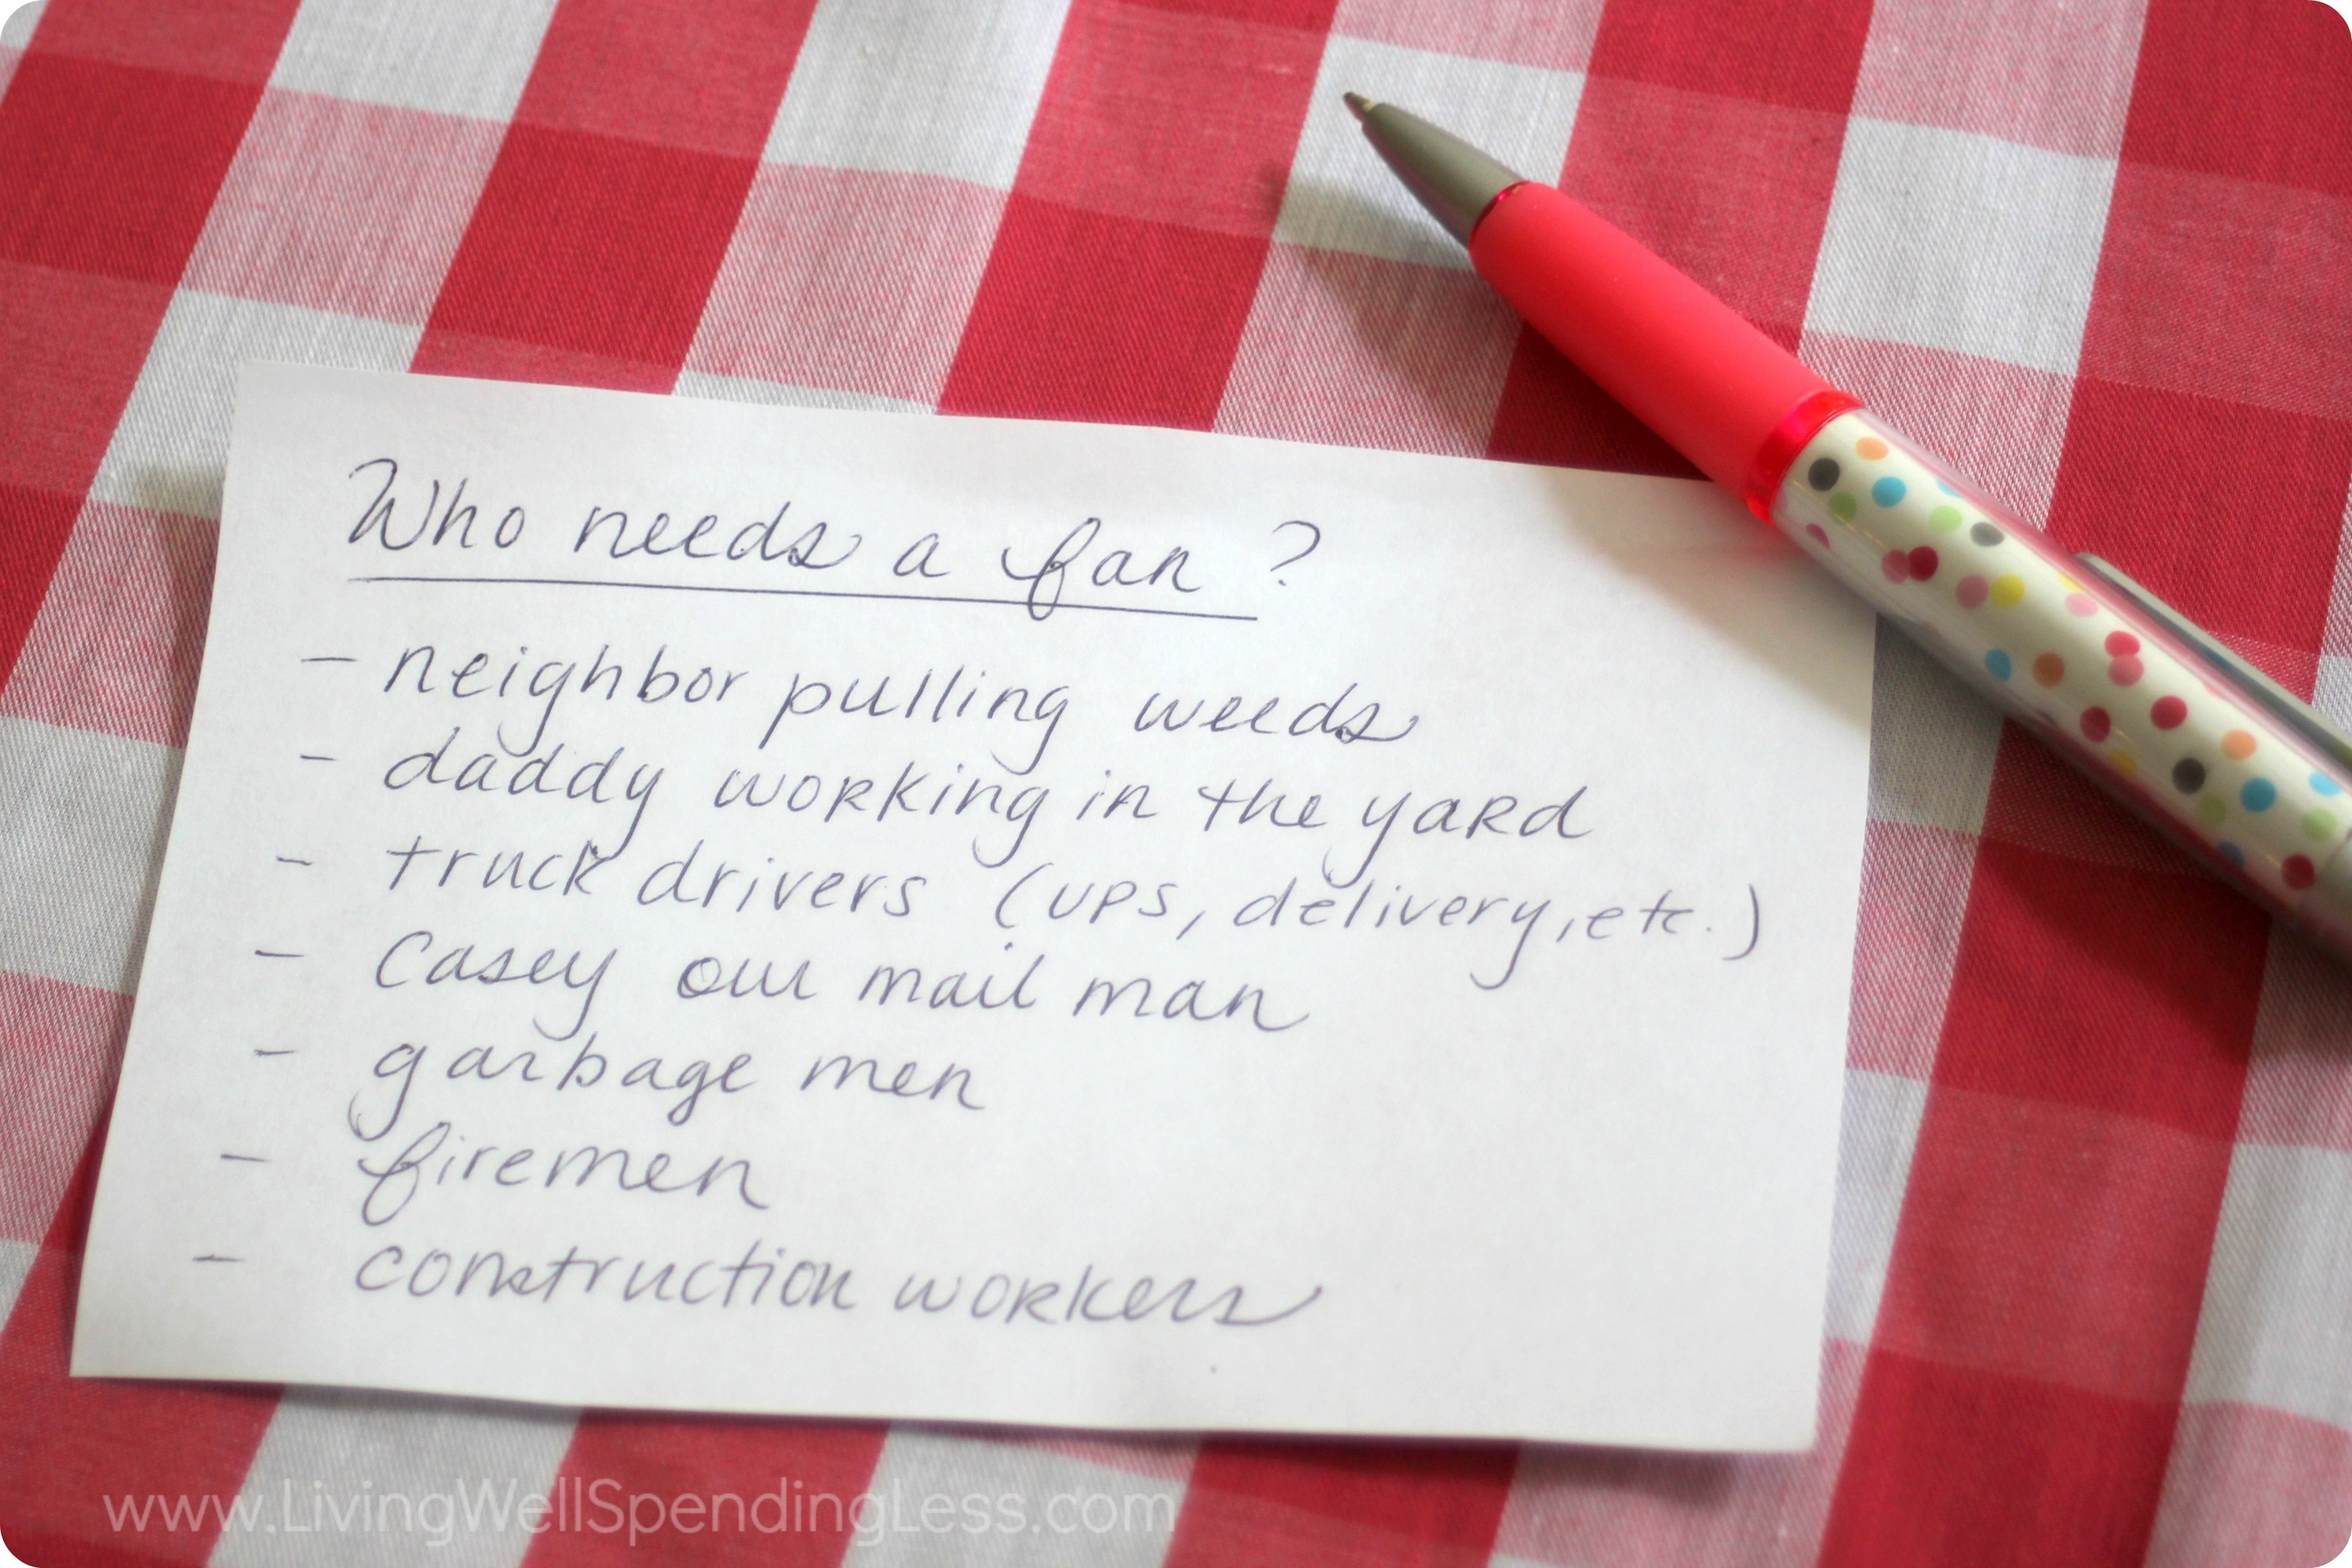 Who needs a fan?
- neighbor pulling weeds
- daddy working in the yard
- truck drivers (UPS, delivery, etc.)
- Casey our mail man
- garbage men
- firemen
- construction workers
www.LivingWellSpendingLess.com